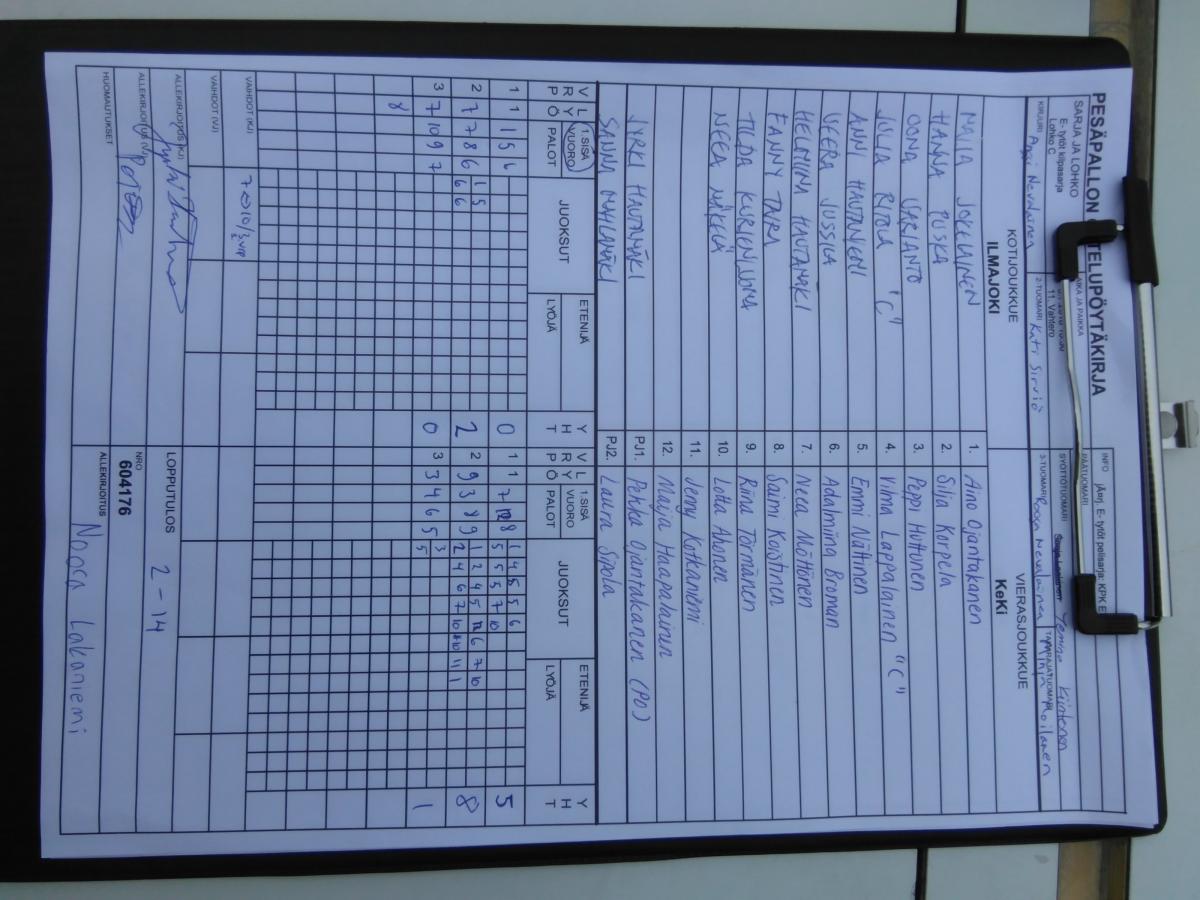 PESÄPALLON OTTELUPÖYTÄKIRJA
SARJA JA LOHKO
E- tytöt kilpasarja
Lohko C
AIKA JA PAIKKA
11. Vahtero
INFO Järj. E- tytöt pelisarja: KPK E
PÄÄTUOMARI
SYÖTTÖTUOMARI
KIRJURI
2-TUOMARI Kati Sirviö
3-TUOMARI Roosa Nevalainen
TAKARAJATUOMARI Minja Moilanen
KOTIJOUKKUE
ILMAJOKI
VIERASJOUKKUE
KeKi
MAIJA JOKELAINEN 1. Aino Ojantakanen
HANNA PUSKA 2. Silja Korpela
OONA 3. Peppi Huttunen
JULIA RITOLA "C" 4. Vilma Lappalainen "C"
ANNI HAUTANIEMI 5. Emmi Nättinen
VEERA JUSSILA 6. Adalmiina Broman
HELMIINA HAUTAMÄKI 7. Neea Möttönen
FANNY TAIRA 8. Saimi Koistinen
TILDA KURJENLUOMA 9. Riina Törmänen
NEEA MÄKELÄ 10. Lotta Ahonen
11. Jenny Kotkaniemi
12. Maija Haapalainen
JYRKI HAUTAMÄKI PJ1. Pekka Ojantakanen (PO)
SANNA MYLLYMÄKI PJ2. Laura Sipola
V L 1.SISÄ JUOKSUT ETENIJÄ Y V L 1.SISÄ JUOKSUT ETENIJÄ Y
R Y VUORO H R Y VUORO H
P Ö PALOT LYÖJÄ T P Ö PALOT LYÖJÄ T
1 1 1 5 6 0 1 1 7 8 1 4 5 5 6 5
5 5 5 7 10
2 7 7 8 6 1 5 2 2 9 3 8 9 1 2 4 5 6 7 10 8
6 6 2 4 6 7 10 10 11 1
3 7 10 9 7 0 3 3 4 6 5 3 1
8 5
VAIHDOT (KJ)
VAIHDOT (VJ)
ALLEKIRJOITUS (KJ)
ALLEKIRJOITUS (VJ)
LOPPUTULOS
2 - 14
NRO
604176
HUOMAUTUKSET
ALLEKIRJOITUS
Noora Lakaniemi